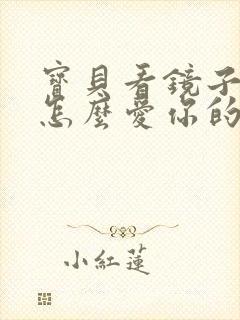 寶貝看鏡子
怎麼愛你的
小紅蓮